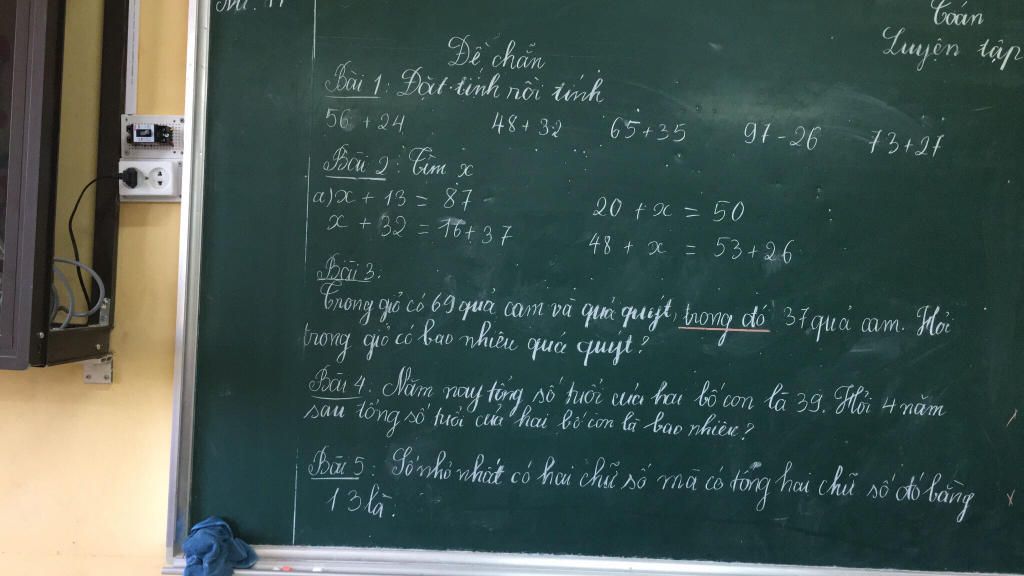 Toán
Luyện tập
Đề chẵn
Bài 1: Đặt tính rồi tính
56 + 24 48 + 32 65 + 35 97 - 26 73 + 27
Bài 2: Tìm x
a) x + 13 = 87 20 + x = 50
x + 32 = 16 + 37 48 + x = 53 + 26
Bài 3:
Trong giỏ có 69 quả cam và quả quýt, trong đó 37 quả cam. Hỏi
trong giỏ có bao nhiêu quả quýt?
Bài 4: Năm nay tổng số tuổi của hai bố con là 39. Hỏi 4 năm
sau tổng số tuổi của hai bố con là bao nhiêu?
Bài 5: Số nhỏ nhất có hai chữ số mà có tổng hai chữ số đó bằng
13 là: